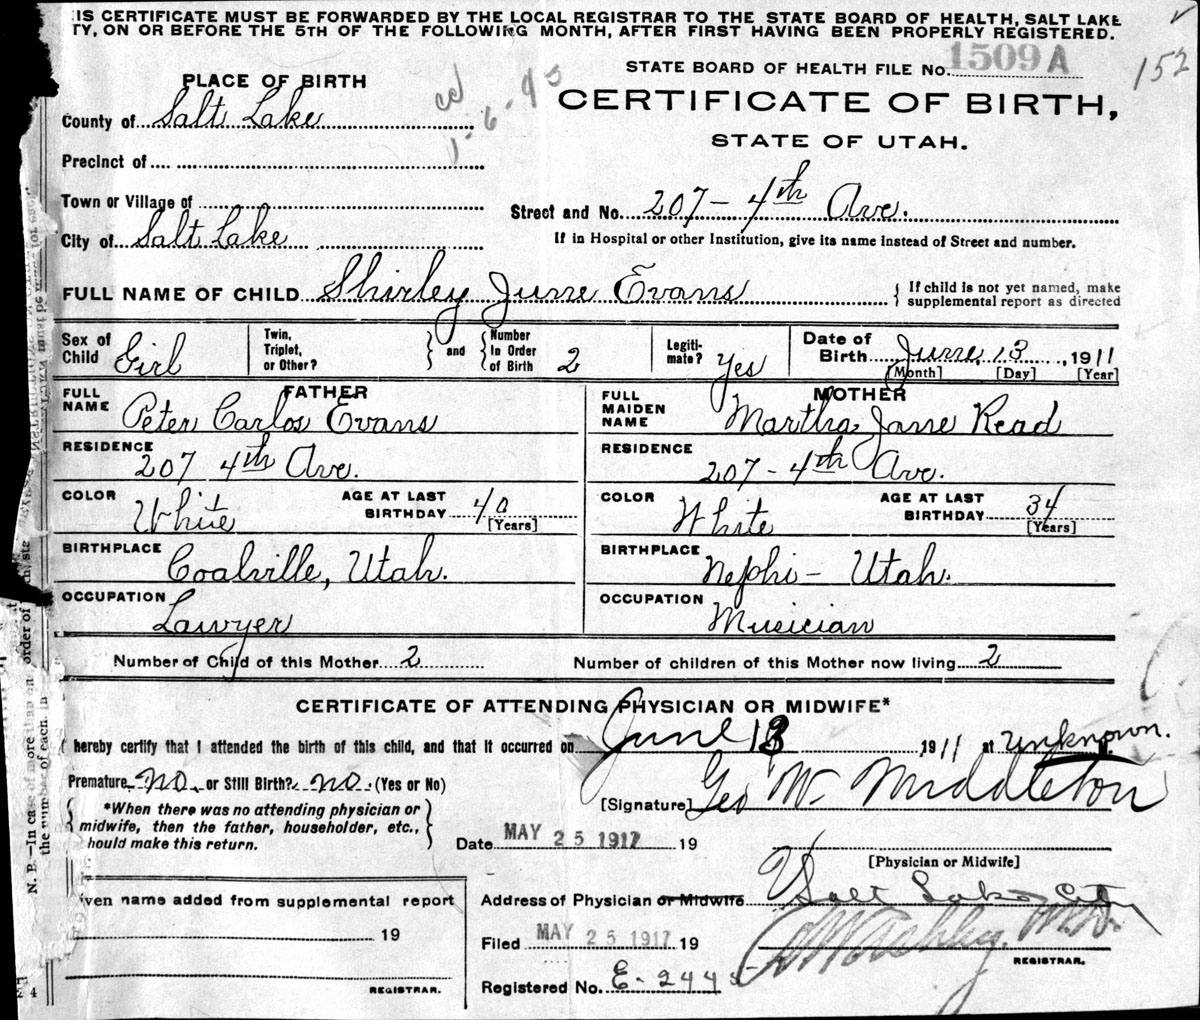 IS CERTIFICATE MUST BE FORWARDED BY THE LOCAL REGISTRAR TO THE STATE BOARD OF HEALTH, SALT LAKE
TY, ON OR BEFORE THE 5TH OF THE FOLLOWING MONTH, AFTER FIRST HAVING BEEN PROPERLY REGISTERED.
152
STATE BOARD OF HEALTH FILE No. 1509 A
PLACE OF BIRTH
CERTIFICATE OF BIRTH,
STATE OF UTAH.
County of Salt Lake
Precinct of
Town or Village of
Street and No. 207 - 4th Ave.
City of Salt Lake
If in Hospital or other Institution, give its name instead of Street and number.
FULL NAME OF CHILD Shirley June Evans
{ If child is not yet named, make
supplemental report as directed
Sex of Child Girl
Twin, Triplet, or Other?
and
Number In Order of Birth 2
Legiti- mate? Yes
Date of Birth June 13, 1911
[Month] [Day] [Year]
FATHER
FULL NAME Peter Carlos Evans
RESIDENCE 207 4th Ave.
COLOR White
AGE AT LAST BIRTHDAY 40 [Years]
BIRTHPLACE Coalville, Utah.
OCCUPATION Lawyer
MOTHER
FULL MAIDEN NAME Martha Jane Read
RESIDENCE 207 - 4th Ave.
COLOR White
AGE AT LAST BIRTHDAY 34 [Years]
BIRTHPLACE Nephi - Utah.
OCCUPATION Musician
Number of Child of this Mother 2
Number of children of this Mother now living 2
CERTIFICATE OF ATTENDING PHYSICIAN OR MIDWIFE*
I hereby certify that I attended the birth of this child, and that it occurred on June 13 1911 at unknown.
Premature No or Still Birth? No. (Yes or No)
[Signature] Geo W. Middleton
*When there was no attending physician or
midwife, then the father, householder, etc.,
hould make this return.
Date MAY 25 1917 19
[Physician or Midwife]
iven name added from supplemental report
19
REGISTRAR.
Address of Physician or Midwife Salt Lake City
Filed MAY 25 1917 19
REGISTRAR.
Registered No. E-2448
N. B.—In case of more
order of
the number of each, in
4